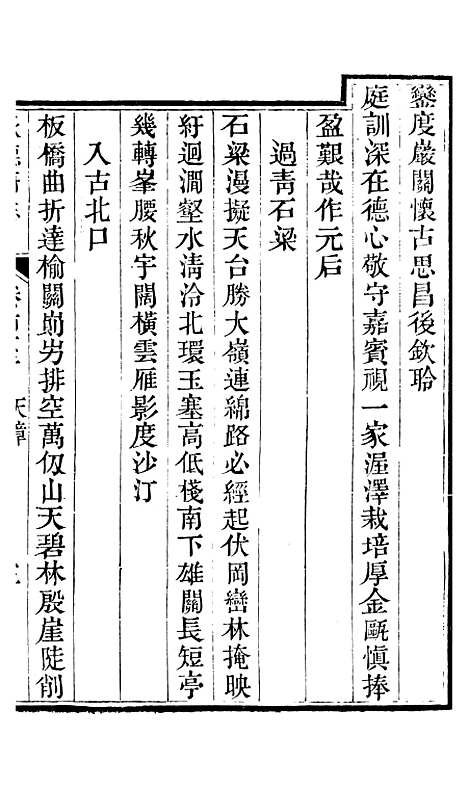 鑾度巖關懷古思昌後欽聆
庭訓深在德心敬守嘉賓視一家渥澤栽培厚金甌慎捧
盈艱哉作元后
過靑石梁
石梁漫擬天台勝大嶺連綿路必經起伏岡巒林掩映
紆迴澗壑水淸泠北環玉塞高低棧南下雄關長短亭
幾轉峯腰秋宇闊橫雲雁影度沙汀
入古北口
板橋曲折達榆關崱屴排空萬仭山天碧林殷崖陡削
天章